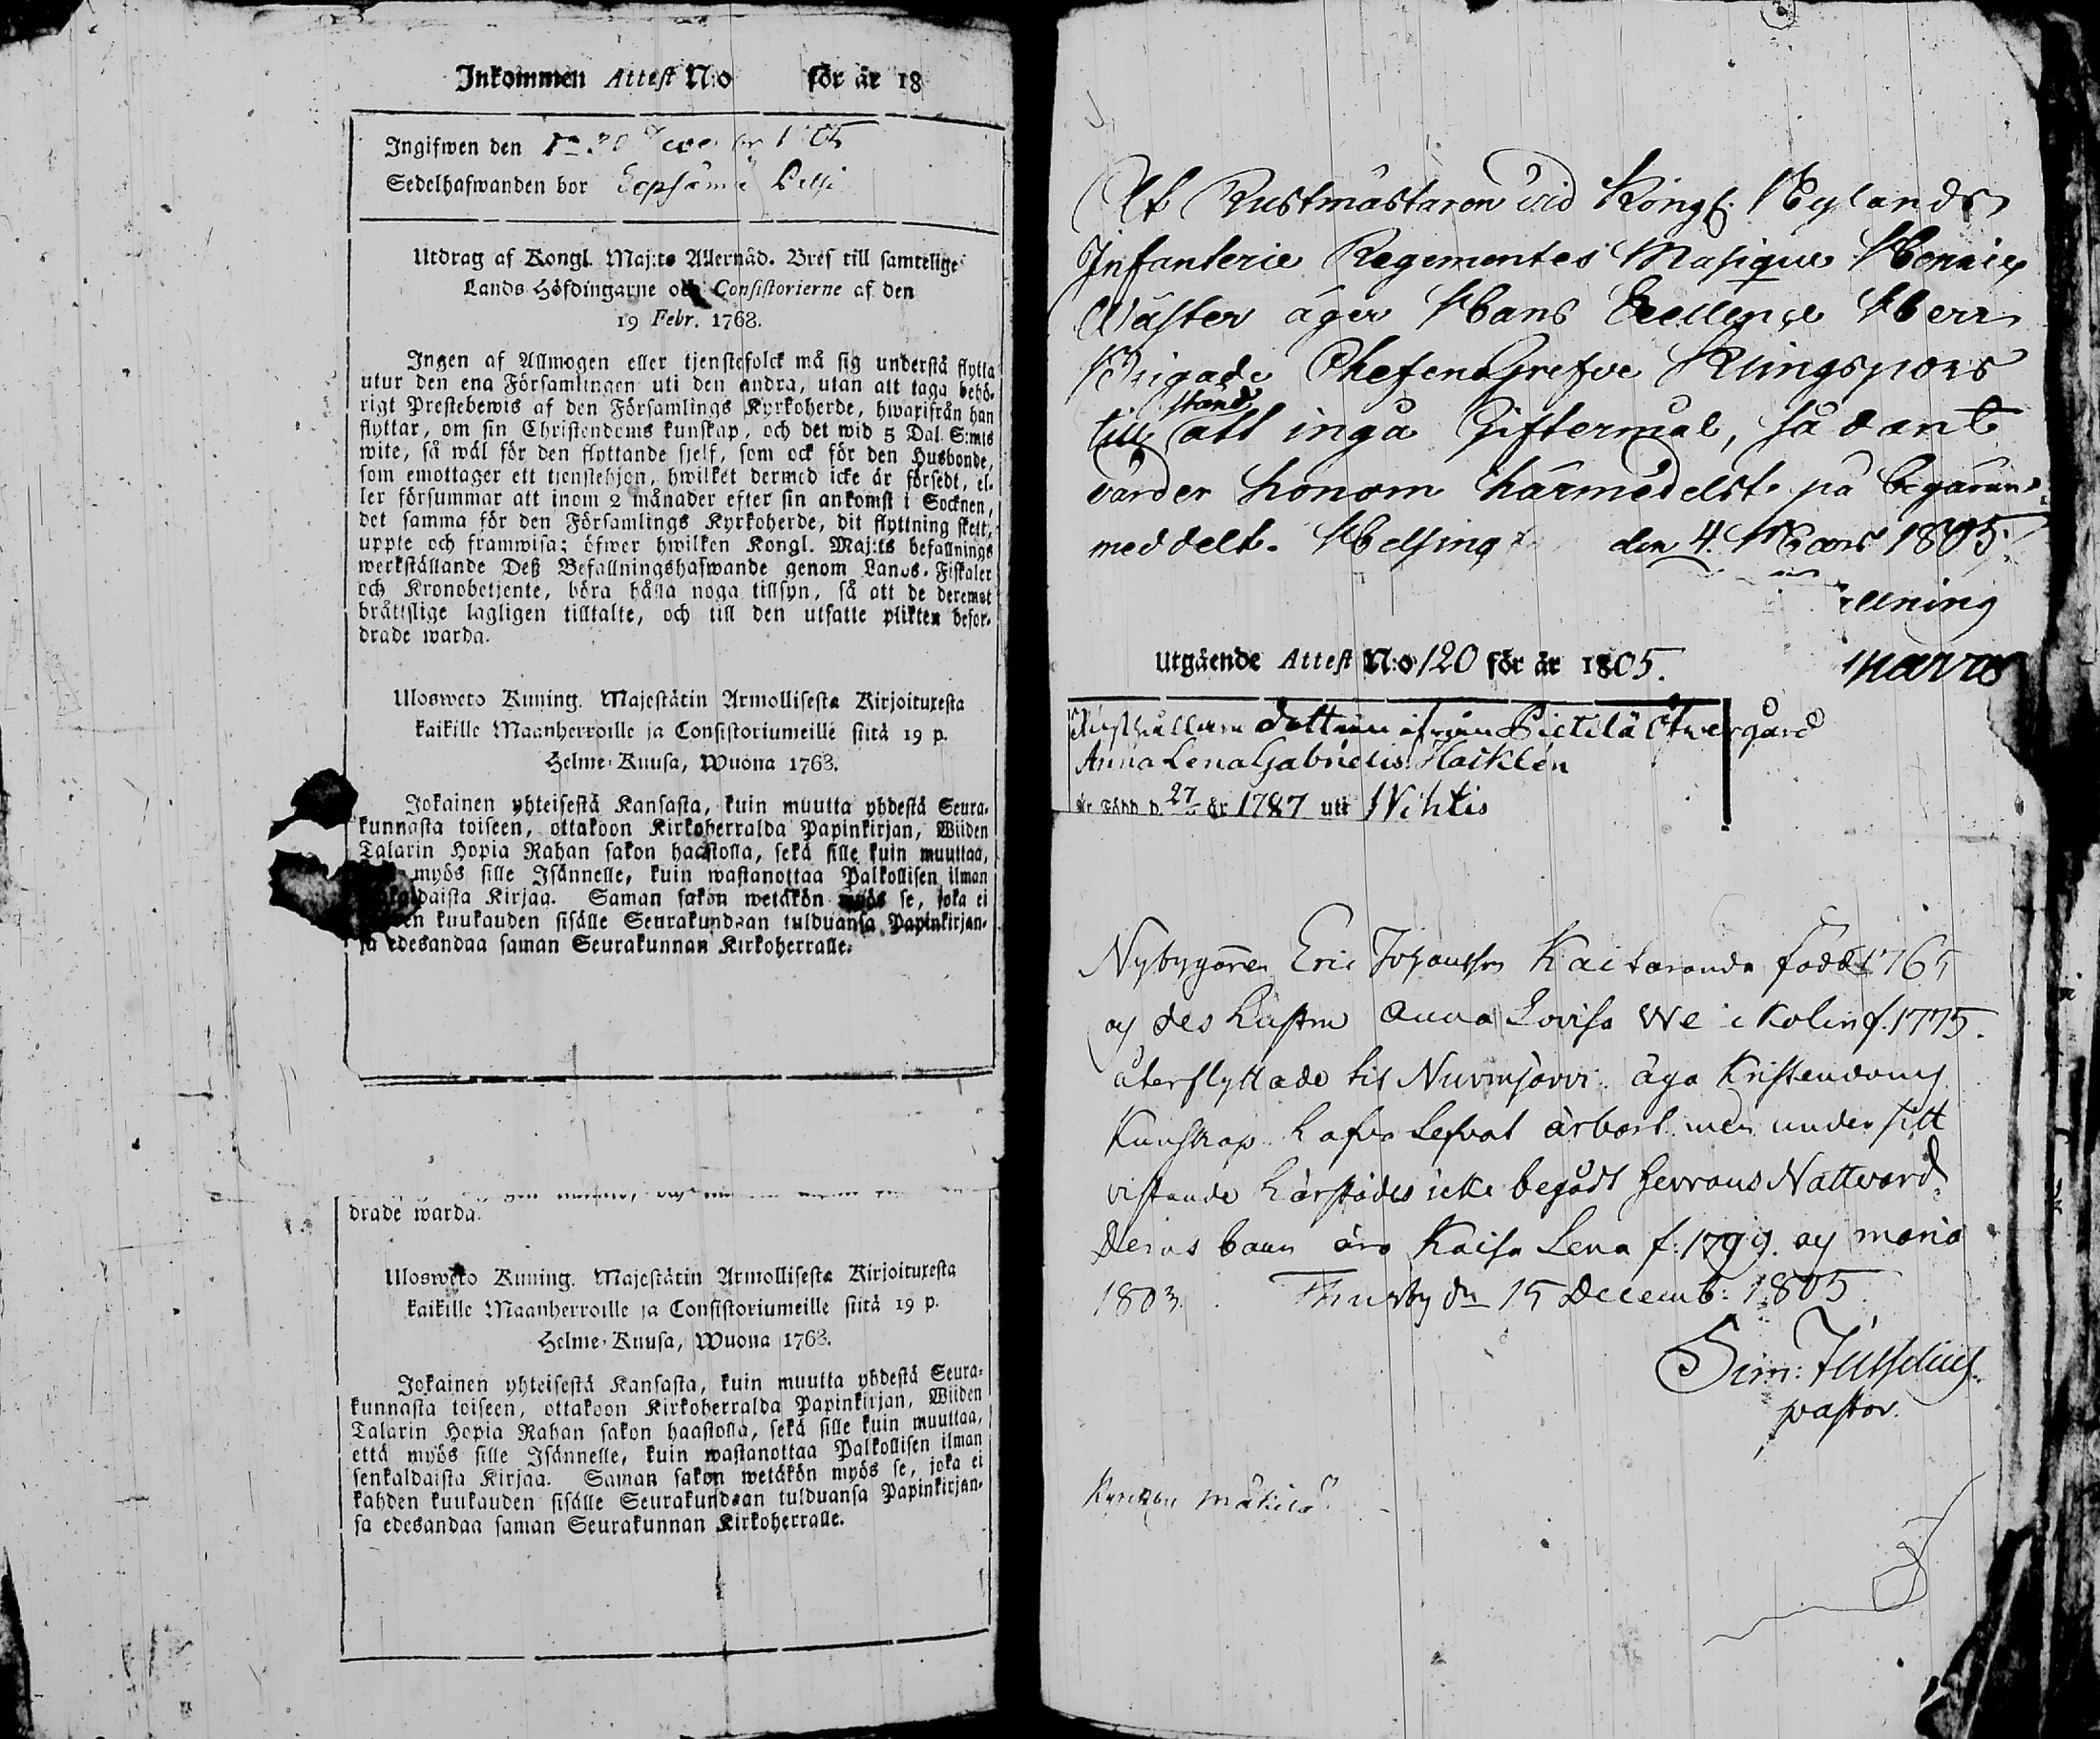 Inkommen Attest N:o för år 18
Ingifwen den
Sedelhafwanden bor
Utdrag af Kongl. Maj:ts Allernåd. Bref till samtelige
Lands Höfdingarne och Consistorierne af den
19 Febr. 1763.
Ingen af Allmogen eller tjenstefolck må sig understå flytta
utur den ena Församlingen uti den andra, utan att taga behö-
rigt Prestebewis af den Församlings Kyrkoherde, hwarifrån han
flyttar, om sin Christendoms kunskap, och det wid 5 Dal. S:mts
wite, så wäl för den flyttande sjelf, som ock för den Husbonde,
som emottager ett tjenstehjon, hwilket dermed icke är försedt, el-
ler försummar att inom 2 månader efter sin ankomst i Socknen,
det samma för den Församlings Kyrkoherde, dit flyttning skett,
uppte och framwisa; öfwer hwilken Kongl. Maj:ts befallnings
werkställande Deß Befallningshafwande genom Lands-Fiskaler
och Kronobetjente, böra hålla noga tillsyn, så att de deremot
bråttslige lagligen tilltalte, och till den utsatte plikten befor-
drade warda.
Ulosweto Kuning. Majestätin Armollisesta Kirjoituxesta
kaikille Maanherroille ja Consistoriumeille siitä 19 p.
Helme-Kuusa, Wuona 1763.
Jokainen yhteisestä Kansasta, kuin muutta yhdestä Seura-
kunnasta toiseen, ottakoon Kirkoherralda Papinkirjan, Wiiden
Talarin Hopia Rahan sakon haastolla, sekä sille kuin muuttaa,
myös sille Isännelle, kuin wastanottaa Palkollisen ilman
kaldaista Kirjaa. Saman sakon wetäkön myös se, joka ei
en kuukauden sisälle Seurakundaan tulduansa Papinkirjan-
sa edesandaa saman Seurakunnan Kirkoherralle.
drade warda.
Ulosweto Kuning. Majestätin Armollisesta Kirjoituxesta
kaikille Maanherroille ja Consistoriumeille siitä 19 p.
Helme-Kuusa, Wuona 1763.
Jokainen yhteisestä Kansasta, kuin muutta yhdestä Seura-
kunnasta toiseen, ottakoon Kirkoherralda Papinkirjan, Wiiden
Talarin Hopia Rahan sakon haastolla, sekä sille kuin muuttaa,
että myös sille Isännelle, kuin wastanottaa Palkollisen ilman
senkaldaista Kirjaa. Saman sakon wetäkön myös se, joka ei
kahden kuukauden sisälle Seurakundaan tulduansa Papinkirjan-
sa edesandaa saman Seurakunnan Kirkoherralle.
At Rustmästaren vid Kongl. Nylands
Infanterie Regementes Musique Henric
Wäster äger Hans Excellence Herr
Brigade Chefen Grefve Klingspors
till stånd att ingå Giftermål, sådant
varder honom härmedelst på begäran
meddelt. Helsing den 4. Mars 1805.
Utgående Attest N:o 120 för år 1805.
Rusthållare dottren ifrån Pietilä Öfwergård
Anna Lena Gabrielis Hacklen
är Född d. 27 år 1787 uti Wihtis
Nybyggaren Eric Johansson Kaitaranda född 1765
og des hustru Anna Lovisa We ikolin f. 1775.
återflyttade til Nurmijärvi. äga Kristendoms
Kunskap hafva lefvat ärbart men under sitt
vistande härstädes icke begådt Herrans Nattvard.
Deras barn äro Kaisa Lena f: 1799. og Maria
1803. Thusby dn 15 Decemb: 1805
Sim:
pastor.
Mäkilä